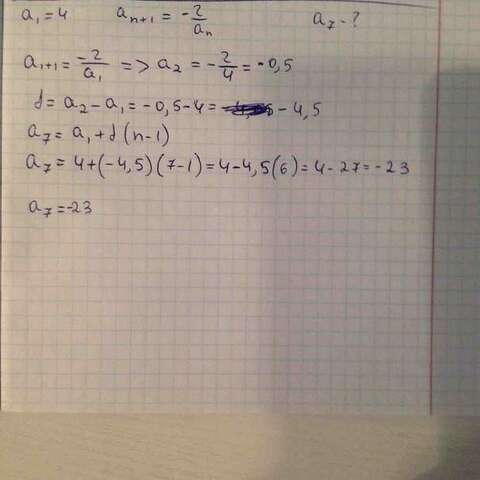 a₁=4 aₙ₊₁ = -2/aₙ a₇-?
a₁₊₁ = -2/a₁ => a₂ = -2/4 = -0,5
d = a₂ - a₁ = -0,5-4 = -4,5
a₇ = a₁ + d(n-1)
a₇ = 4+(-4,5)(7-1) = 4-4,5(6) = 4-27 = -23
a₇ = -23